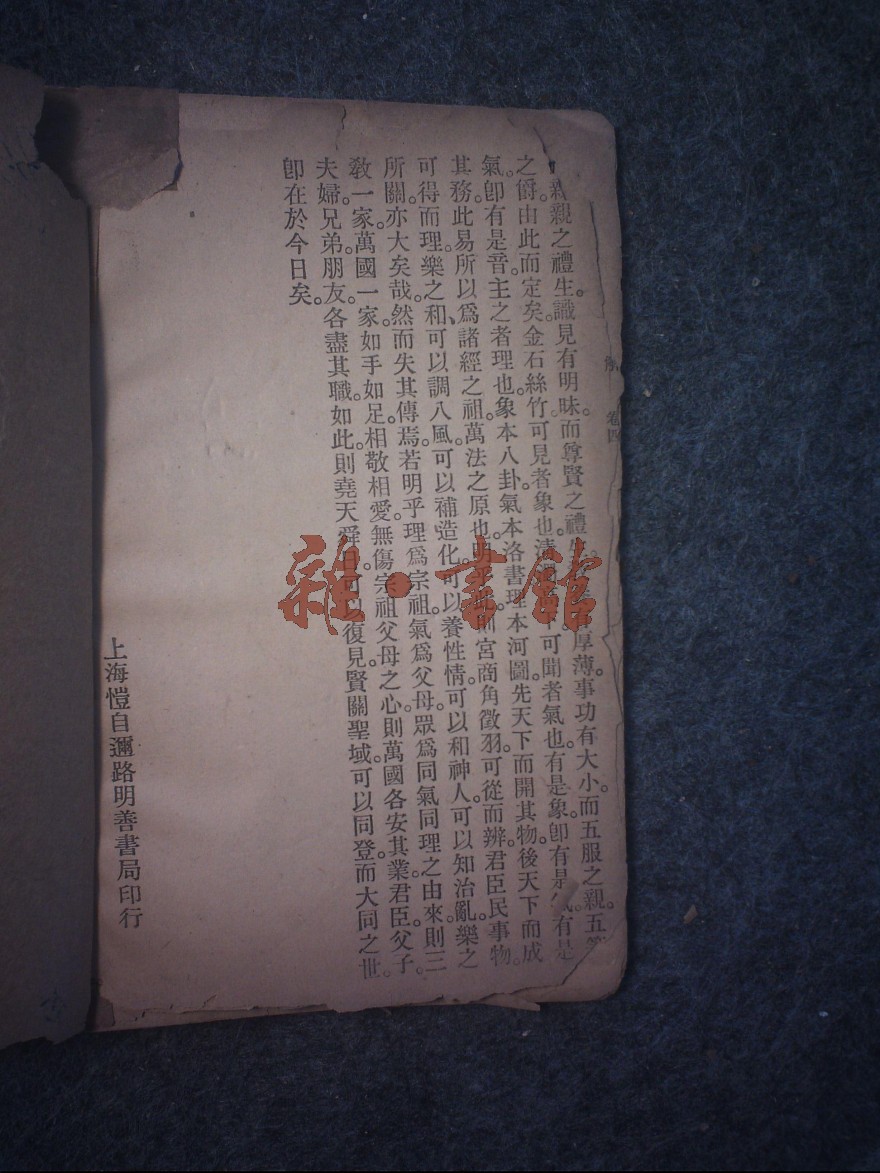 親親之禮生。識見有明昧。而尊賢之禮生。厚薄。事功有大小。而五服之親。五
之爵。由此而定矣。金石絲竹可見者象也。可聞者氣也。有是象。卽有是氣。有是
氣。卽有是音。主之者理也。象本八卦。氣本洛書。理本河圖。先天下而開其物。後天下而成
其務。此易所以爲諸經之祖。萬法之原也。明乎則宮商角徵羽可從而辨。君臣民事物。
可得而理。樂之和、可以調八風。可以補造化。可以養性情。可以和神人。可以知治亂。樂之
所關。亦大矣哉。然而失其傳焉。若明乎理爲宗祖。氣爲父母。眾爲同氣同理之由來。則三
敎一家。萬國一家。如手如足。相敬相愛。無傷宗祖父母之心。則萬國各安其業。君臣父子。
夫婦兄弟朋友。各盡其職。如此。則堯天舜日。可以復見。賢關聖域。可以同登。而大同之世。
卽在於今日矣。
卷四
上海愷自邇路明善書局印行
雜·書館